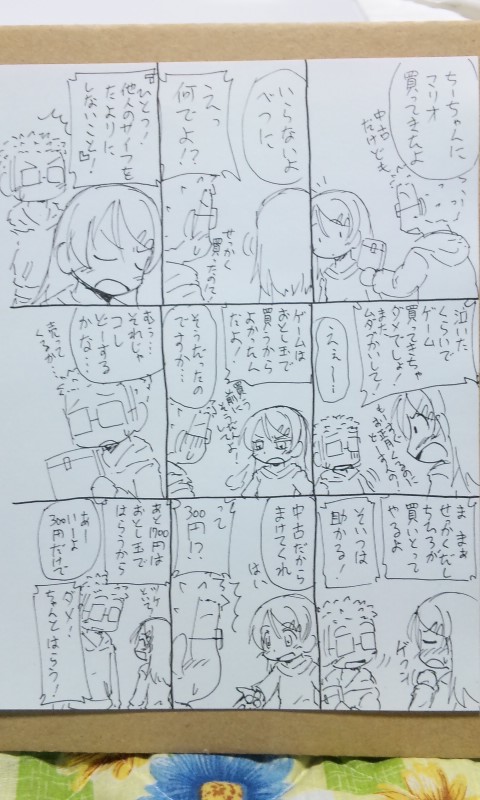 ちーちゃんに
マリオ
買ってきたよ
中古
だけどね
いらないよ
べつに
えっ
何でよ!?
せっかく
買ったのに!
『ひとつ!
他人のサイフを
たよりに
しないこと』!
泣いた
くらいで
ゲーム
買ってきちゃ
ダメでしょ!
また
ムダづかいして!
ええ〜…
もうすぐくるのに
お正月
ゲームは
おとし玉で
買うから
よかったん
だよ!
そうだったの
ですか…
買う
前に
そうだんしてよ!
むぅ…
それじゃ
コレ
どーする
かな…
売って
くるか…
まぁ
せっかくだし
ちちろが
買いとって
やるよ
そいつは
助かる!
ゲフン
中古だから
まけてくれ
はい
って
300円!?
あと1700円は
おとし玉で
はらうから
あー
いーよ
300円だけで
ツケ
といて
ダメ!
ちゃんとはらう!